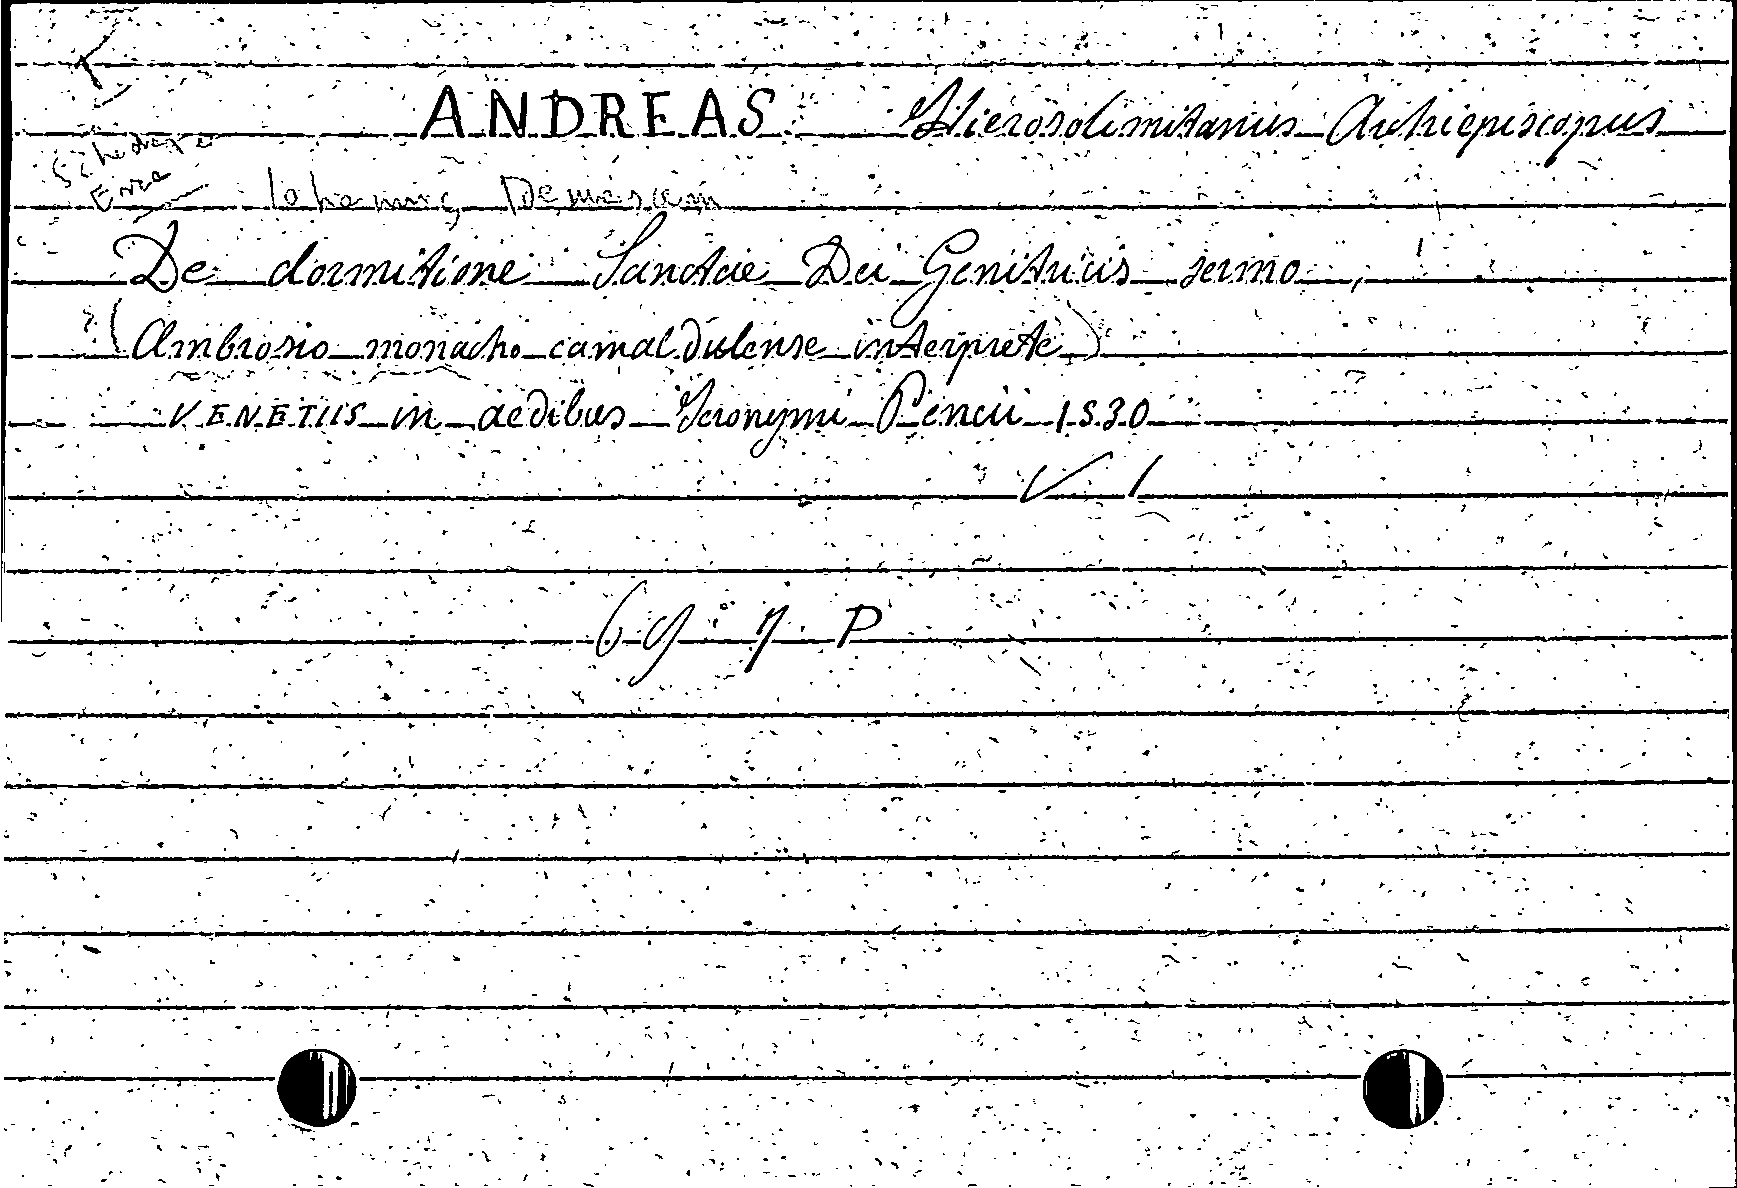 ANDREAS Hierosolimitanus Archiepiscopus
Schedare
Iohannis Damascani
De dormitione Sanctae Dei Genitricis sermo,
(Ambrosio monacho camaldulense interprete)
VENETIIS in aedibus Jeronymi Pencii 1530
V 1
69. 7. P